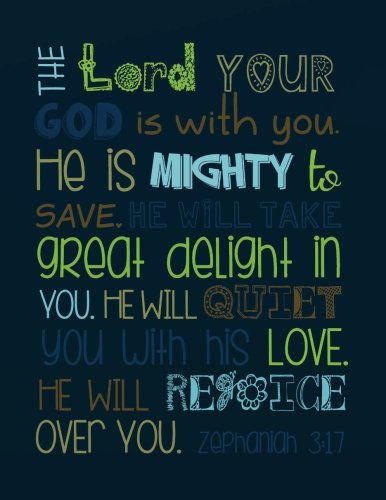 THE Lord YOUR
GOD is with you.
He is MIGHTY to
SAVE. HE WILL TAKE
great delight in
YOU. HE WILL QUIET
you with his LOVE.
HE WILL REJOICE
OVER YOU. Zephaniah 3:17